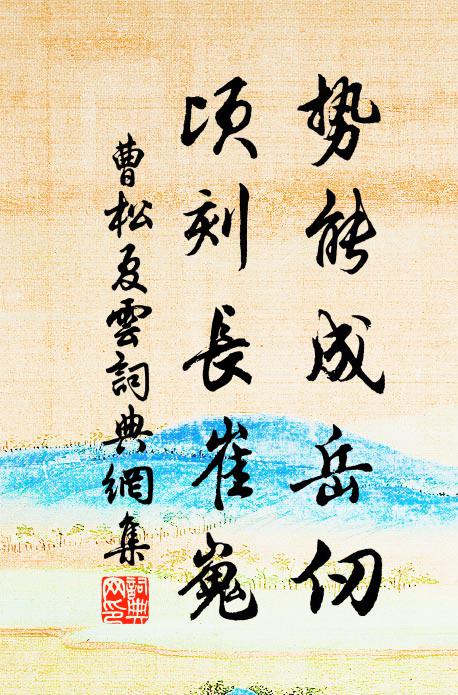 势能成岳仞
顷刻長崔嵬
曹松夏雲詞典網集
詞典